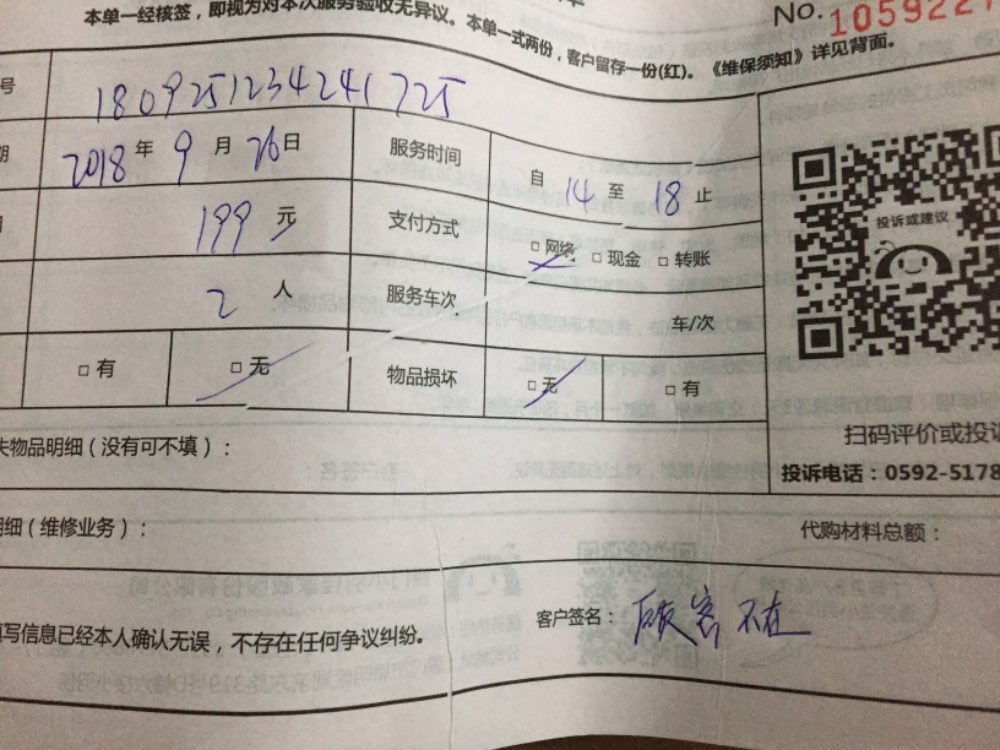 本单一经核签，即视为对本次服务验收无异议。本单一式两份，客户留存一份(红)。《维保须知》详见背面。
No. 1059227
号 1809251234241725
期 2018年9月26日 服务时间 自 14 至 18 止
199元 支付方式 □ 网络 □ 现金 □ 转账
投诉或建议
2 人 服务车次 车/次
□ 有 □ 无 物品损坏 □ 无 □ 有
扫码评价或投诉
失物品明细（没有可不填）：
投诉电话：0592-5178
明细（维修业务）： 代购材料总额：
填写信息已经本人确认无误，不存在任何争议纠纷。 客户签名： 顾客不在